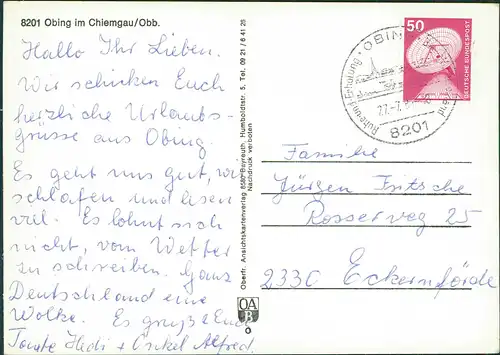 8201 Obing im Chiemgau/Obb.
Hallo Ihr Lieben.
Wir schicken Euch
herzliche Urlaubs-
grüsse aus Obing.
Es geht uns gut, wir
schlafen und lesen
viel. Es lohnt sich
nicht, vom Wetter
zu schreiben. Ganz
Deutschland eine
Wolke. Es grüße Euch
Tante Hedi + Onkel Alfred.
Oberfr. Ansichtskartenverlag, 8580 Bayreuth, Humboldtstr. 5, Tel. 09 21 / 6 41 25
Nachdruck verboten
OA
B
OBING
Ruhe und Erholung
27.-7.
8201
50
DEUTSCHE BUNDESPOST
Familie
Jürgen Fritsche
Rosserweg 25
2330 Eckernförde